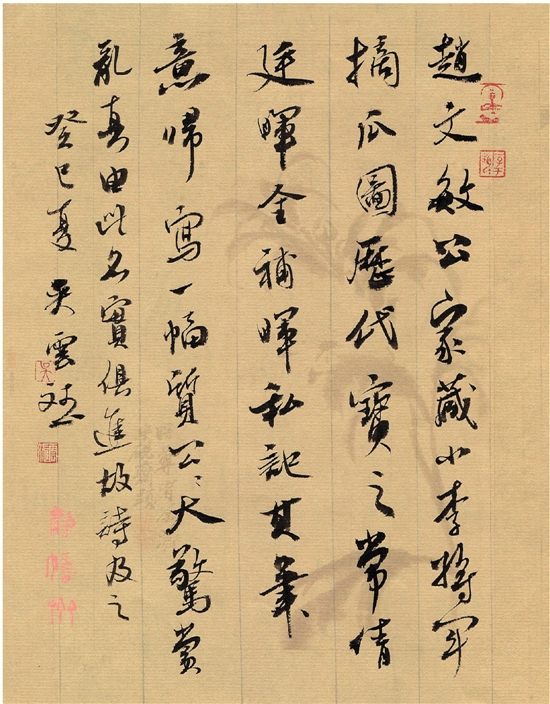 趙文敏公家藏小李將軍
摘瓜圖歷代寶之常倩
廷暉全補暉私記其筆
意歸寫一幅質公公大驚賞
亂真由此名實俱進故詩及之
癸巳夏 吴雲